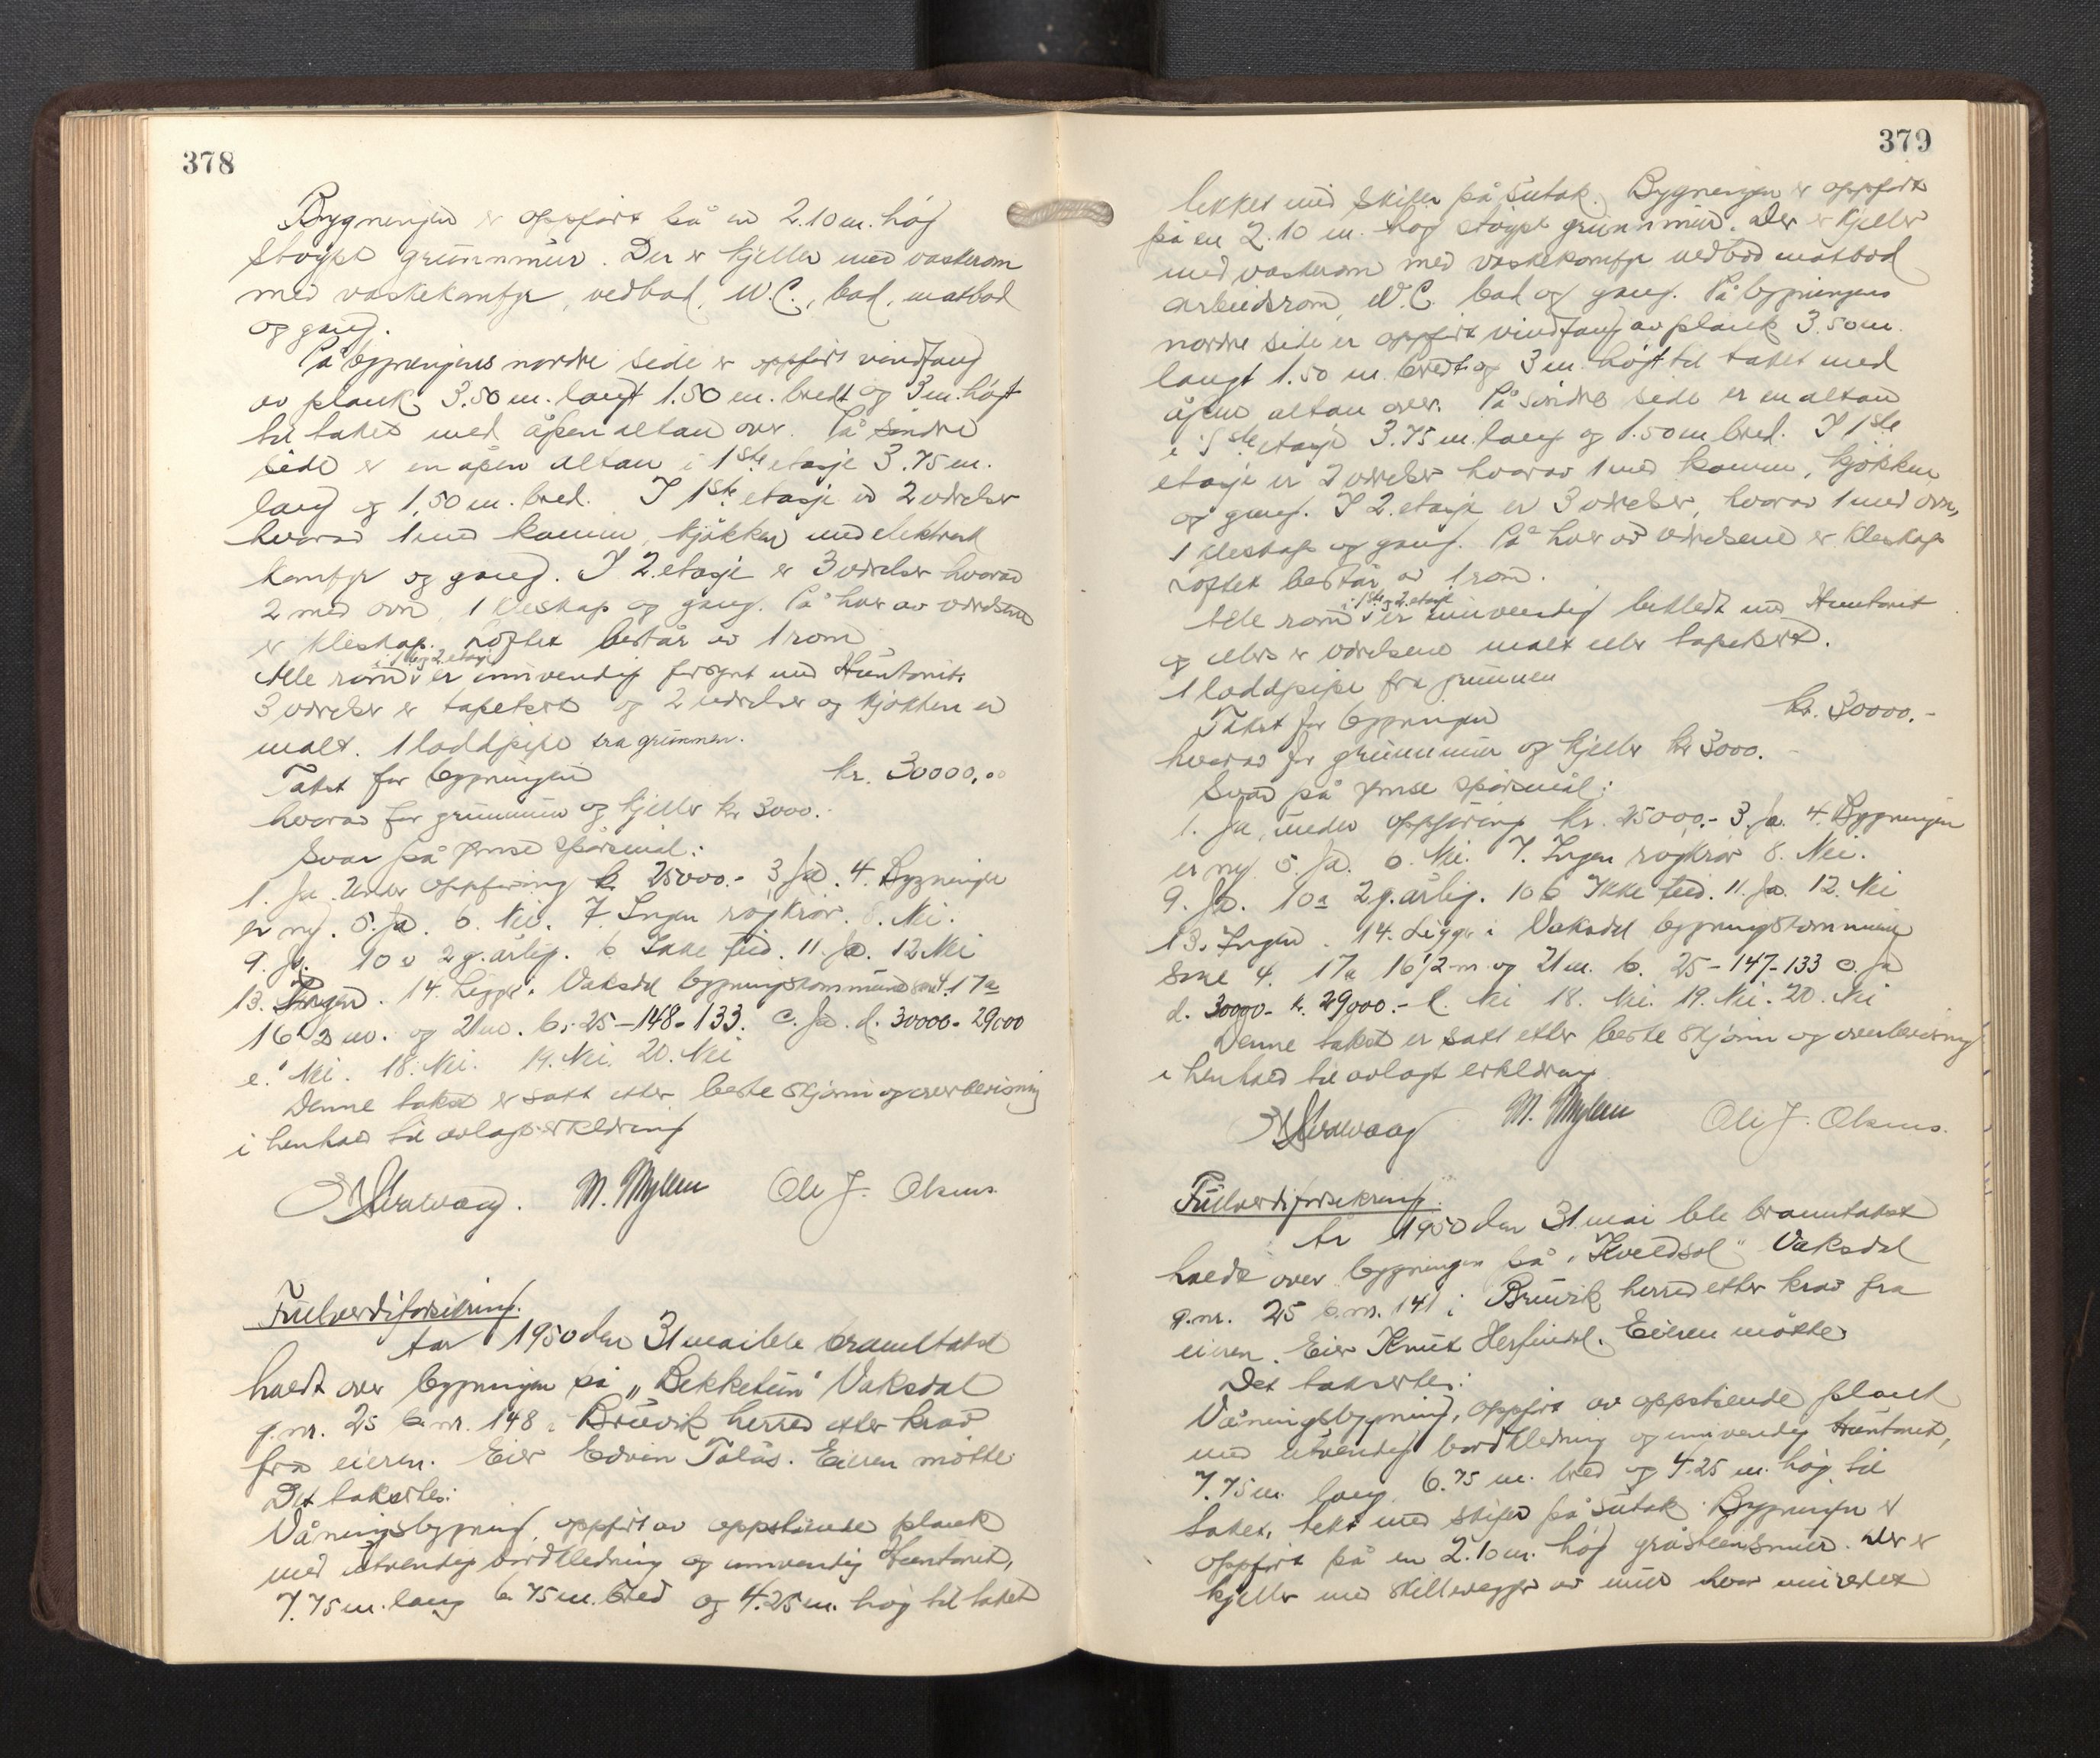 378
Bygningen er oppført på en 2.10 m. høg
støypt grunnmur. Der er kjeller med vaskerom
med vaskekomfyr, vedbod, W.C., bad, matbod
og gang.
På bygningens nordre side er oppført vindfang
av plank 3.50 m. langt 1.50 m. bredt og 3 m. høgt
til taket med åpen altan over. På søndre
side er en åpen altan i 1ste etasje 3.75 m.
lang og 1,50 m. bred. I 1ste etasje er 2 værelser
hvorav 1 med kamin, kjøkken med elektrisk
komfyr og gang. I 2. etasje er 3 værelser hvorav
2 med ovn, 1 kleskap og gang. På hver av værelsene
er kleskap. Loftet består av 1 rom
i 1ste og 2. etasje
Alle rom er innvendig forsynt med Huntonit.
3 værelser er tapetsert og 2 værelser og kjøkken er
malt. 1 loddpipe fra grunnen.
Takst for bygningen kr. 30000.00
hvorav for grunnmur og kjeller kr 3000.-
Svar på ymse spørsmål:
1. Ja. Under oppføring kr. 25000.- 3. Ja. 4. Bygningen
er ny. 5. Ja. 6. Nei. 7. Ingen røykrør. 8. Nei.
9. Ja. 10 a 2 g. årlig. b. Ikke feid. 11. Ja. 12 Nei
13. Ingen. 14. Ligger i Vaksdal bygningskommune som 4. 17a
16 1/2 m. og 21 m. b. 25-148-133. c. Ja. d. 30000- 29000
e. Nei. 18. Nei. 19. Nei. 20. Nei
Denne takst er satt etter beste skjønn og overbevisning
i henhold til avlagt erklæring
M. Myllen Ole J. Olsnes.
Fullverdiforsikring.
År 1950 den 31 mai ble branntakst
holdt over bygningen på „Bekketun" Vaksdal
g.nr. 25 b.nr. 148 i Bruvik herred etter krav
fra eieren. Eier Edvin Tolås. Eieren møtte.
Det takseres:
Våningsbygning, oppført av oppstående plank
med utvendig bordkledning og innvendig Huntonit,
7.75 m. lang 6.75 m. bred og 4.25 m. høg til taket
379
tekket med skifer på sutak. Bygningen er oppført
på en 2.10 m. høg støypt grunnmur. Der er kjeller
med vaskerom med vaskekomfyr vedbod matbod
arbeidsrom, W.C. bad og gang. På bygningens
nordre side er oppført vindfang av plank 3.50 m.
langt 1.50 m. bredt og 3 m. høgt til taket med
åpen altan over. På søndre side er en altan
i 1ste etasje 3.75 m. lang og 1.50 m bred. I 1ste
etasje er 2 værelser hvorav 1 med kamin, kjøkken
og gang. I 2. etasje er 3 værelser, hvorav 1 med ovn,
1 kleskap og gang. På hver av værelsene er kleskap
Loftet består av 1 rom.
i 1ste og 2. etasje
Alle rom er innvendig bekledt med Huntonit
og ellers er værelsene malt eller tapetsert.
1 loddpipe fra grunnen
Takst for bygningen kr. 30000.-
hvorav for grunnmur og kjeller kr 3000.-
Svar på ymse spørsmål:
1. Ja, under oppføring kr. 25000.- 3. Ja. 4. Bygningen
er ny. 5. Ja. 6. Nei. 7. Ingen røykrør 8. Nei.
9. Ja. 10a 2 g. årlig. 10 b Ikke feid. 11. Ja. 12. Nei
13. Ingen. 14. Ligger i Vaksdal bygningskommune
som 4. 17a 16 1/2 m. og 21 m. b. 25-147-133 c. Ja
d. 30000- k. 29000.- e. Nei 18. Nei. 19. Nei. 20. Nei
Denne takst er satt etter beste skjønn og overbevisning
i henhold til avlagt erklæring.
M. Myllen Ole J. Olsnes.
Fullverdiforsikring.
År 1950 den 31 mai ble branntakst
holdt over bygningen på „Kveldsol" Vaksdal
g.nr. 25 b.nr. 141 i Bruvik herred etter krav fra
eieren. Eier Knut Herfindal. Eieren møtte.
Det takseres:
Våningsbygning, oppført av oppstående plank
med utvendig bordkledning og innvendig Huntonit,
7.75 m. lang 6.75 m. bred og 4.25 m. høg til
taket, tekt med skifer på sutak. Bygningen er
oppført på en 2.10 m. høg gråsteinsmur. Der er
kjeller med skillevegger av mur hvor innredet